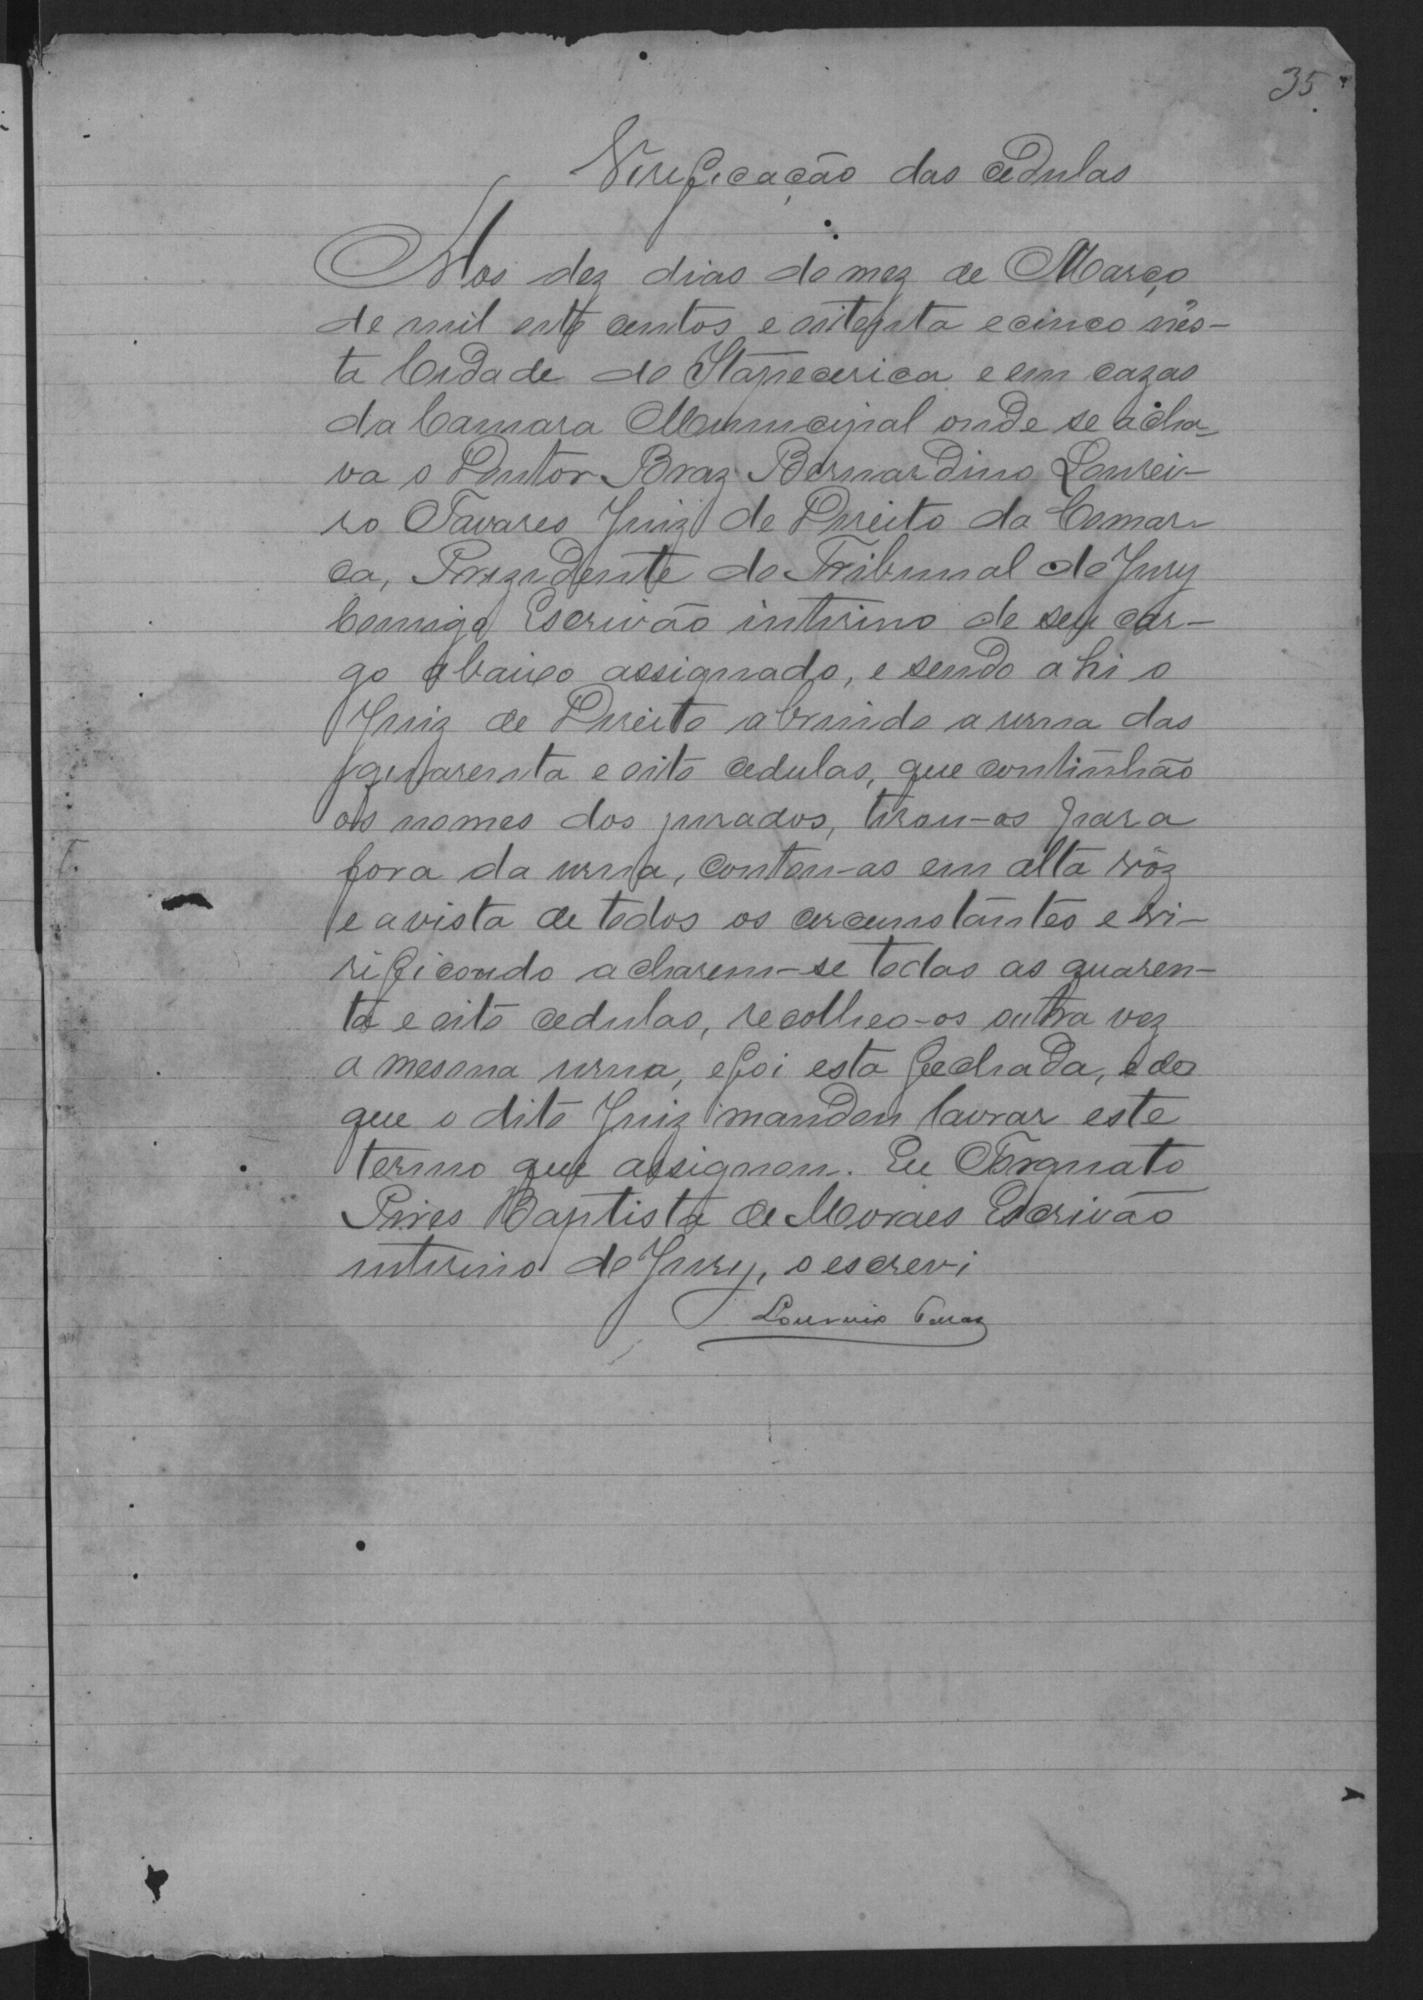 35
Virificação das cedulas
Aos dez dias do mez de Março
de mil oito centos e oitenta e cinco nes-
ta Cidade do Itapecerica e em cazas
da Camara Municipal onde se acha-
va o Doutor Braz Bernardino Lourei-
ro Tavares Juiz de Direito da Comar-
ca, Prezidente do Tribunal do Jury
Commigo Escrivão interino de seu car-
go abaixo assignado, e sendo ahi o
Juiz de Direito abrindo a urna das
quarenta e oito cedulas, que continhão
os nomes dos jurados, tirou-as para
fora da urna, contou-as em alta vóz
e a vista de todos os circumstantes e vi-
rificando acharem-se todas as quaren-
ta e oito cedulas, recolheo-os outra vez
a mesma urna, e foi esta fechada, e do
que o dito Juiz mandou lavrar este
termo que assignou. Eu Torquato
Pires Baptista de Moraes Escrivão
interino do Jury, o escrevi
Loureiro